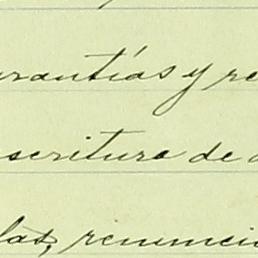 arantías y re
scritura de a
las, renuncia